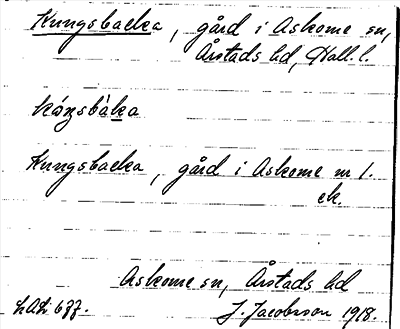 Kungsbacka, gård i Askome sn,
Årstads hd, Hall. l.
Kungsbacka, gård i Askome nr 1.
ek.
Askome sn, Årstads hd
J. Jacobsson 1918.